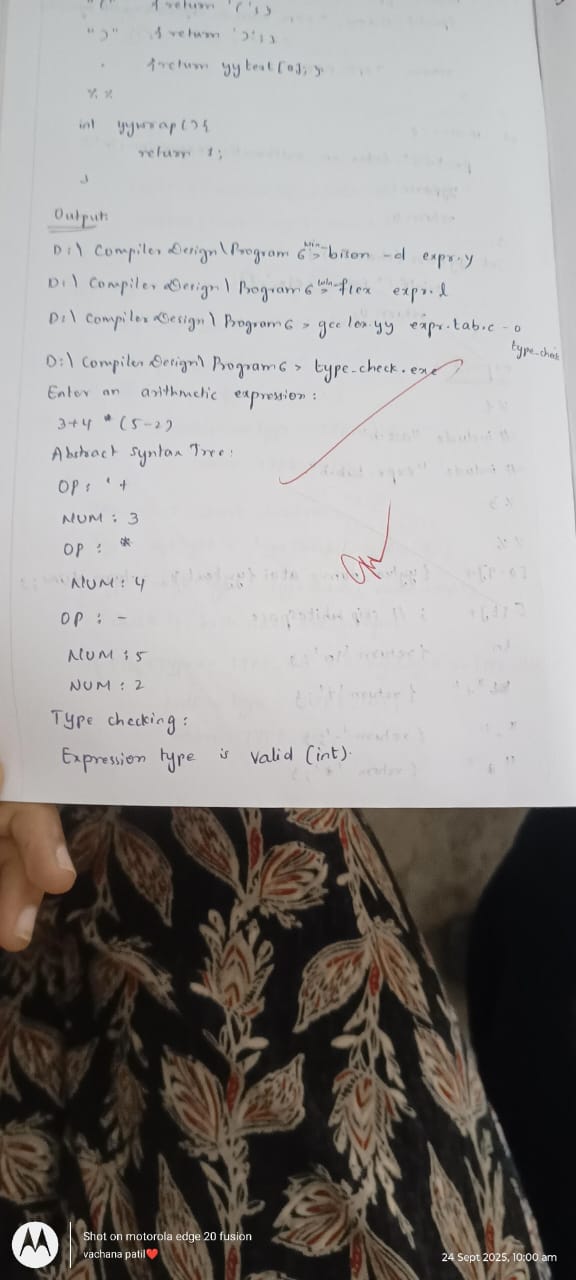 "(" { return '('; }
")" { return ')'; }
. { return yytext[0]; }
%%
int yywrap() {
return 1;
}
Output:
D:\ Compiler Design\Program 6 > win-bison -d expr.y
D:\ Compiler Design\ Program 6 > win-flex expr.l
D:\ Compiler Design\ Program 6 > gcc lex.yy expr.tab.c -o
type_check
D:\ Compiler Design\ Program 6 > type_check.exe
Enter an arithmetic expression :
3+4 * (5-2)
Abstract Syntax Tree:
OP : '+
NUM : 3
OP : *
NUM : 4
OP : -
NUM : 5
NUM : 2
Type checking :
Expression type is valid (int).
Shot on motorola edge 20 fusion
vachana patil❤️
24 Sept 2025, 10:00 am